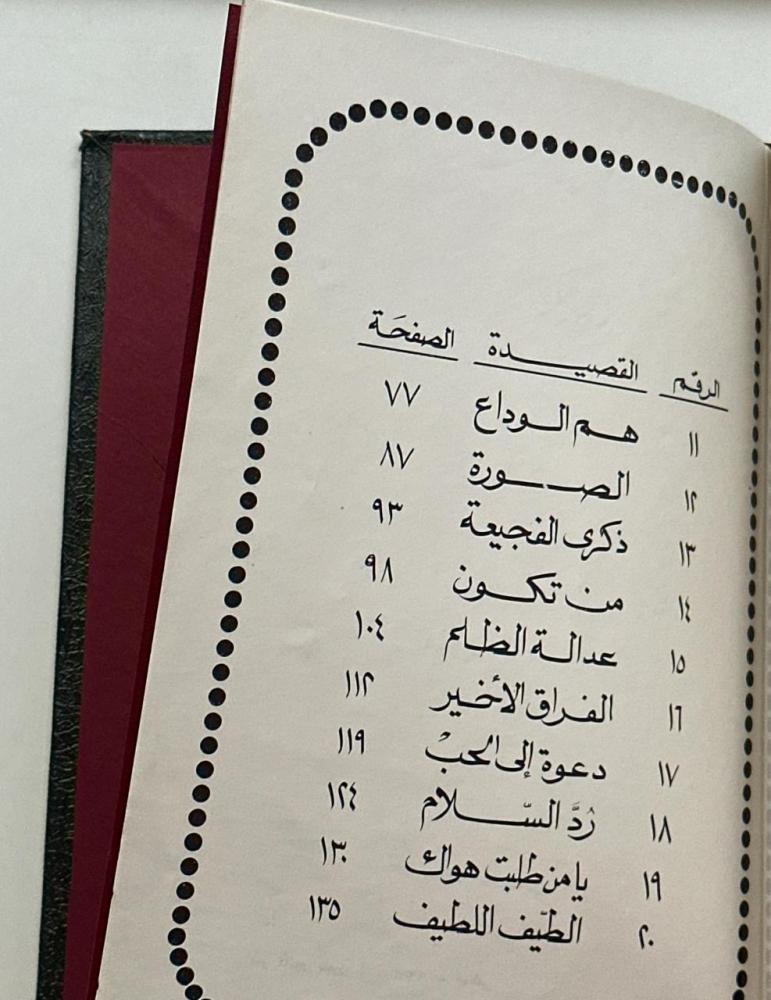 الرقم القصيدة الصفحَة
١١ هم الوداع ٧٧
١٢ الصورة ٨٧
١٣ ذكرى الفجيعة ٩٣
١٤ من تكون ٩٨
١٥ عدالة الظلم ١٠٤
١٦ الفراق الأخير ١١٢
١٧ دعوة إلى الحبْ ١١٩
١٨ رُدَّ السّلام ١٢٤
١٩ يا من طلبت هواك ١٣٠
٢٠ الطّيف اللطيف ١٣٥